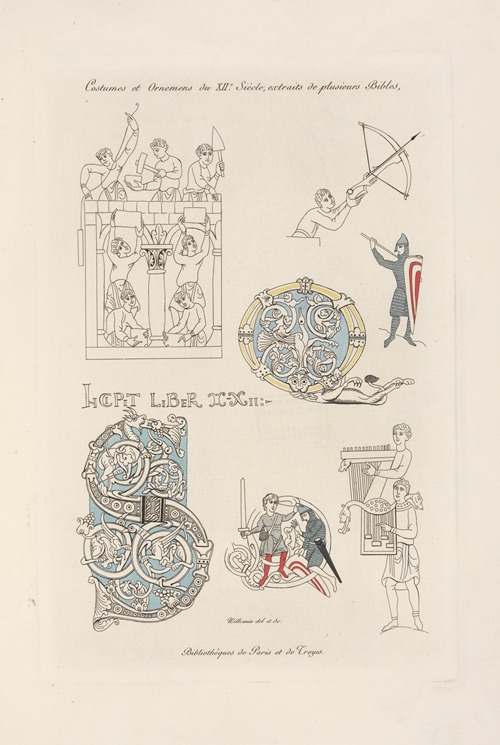 Costumes et Ornemens du XII.e Siècle, extraits de plusieurs Bibles,
INCPIT LIBER XXII:-
Willemin del et Sc.
Bibliothèques de Paris et de Troyes.